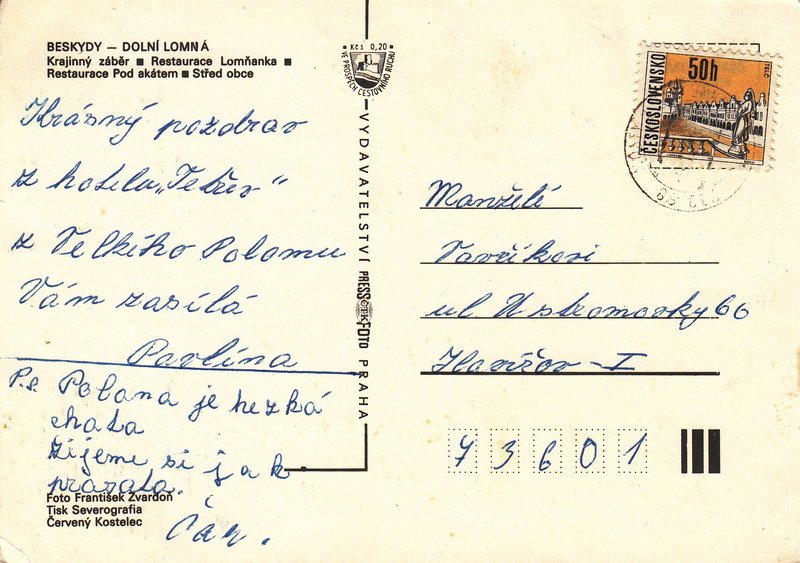 BESKYDY — DOLNÍ LOMNÁ
Krajinný záběr ■ Restaurace Lomňanka ■
Restaurace Pod akátem ■ Střed obce
Kčs 0,20
VE PROSPĚCH CESTOVNÍHO RUCHU
ČESKOSLOVENSKO
50h
TELČ
Krásný pozdrav
z hotelu „Tetřev“
z Velkího Polomu
Vám zasílá
Pavlína
P.s. Polana je hezká
chata
žijeme si jak
prasata.
Čár.
VYDAVATELSTVÍ PRESSFOTO PRAHA
ČTK
Manželé
Vavříkovi
ul. 66
Havířov-I
73601
Foto František Zvardoň
Tisk Severografia
Červený Kostelec